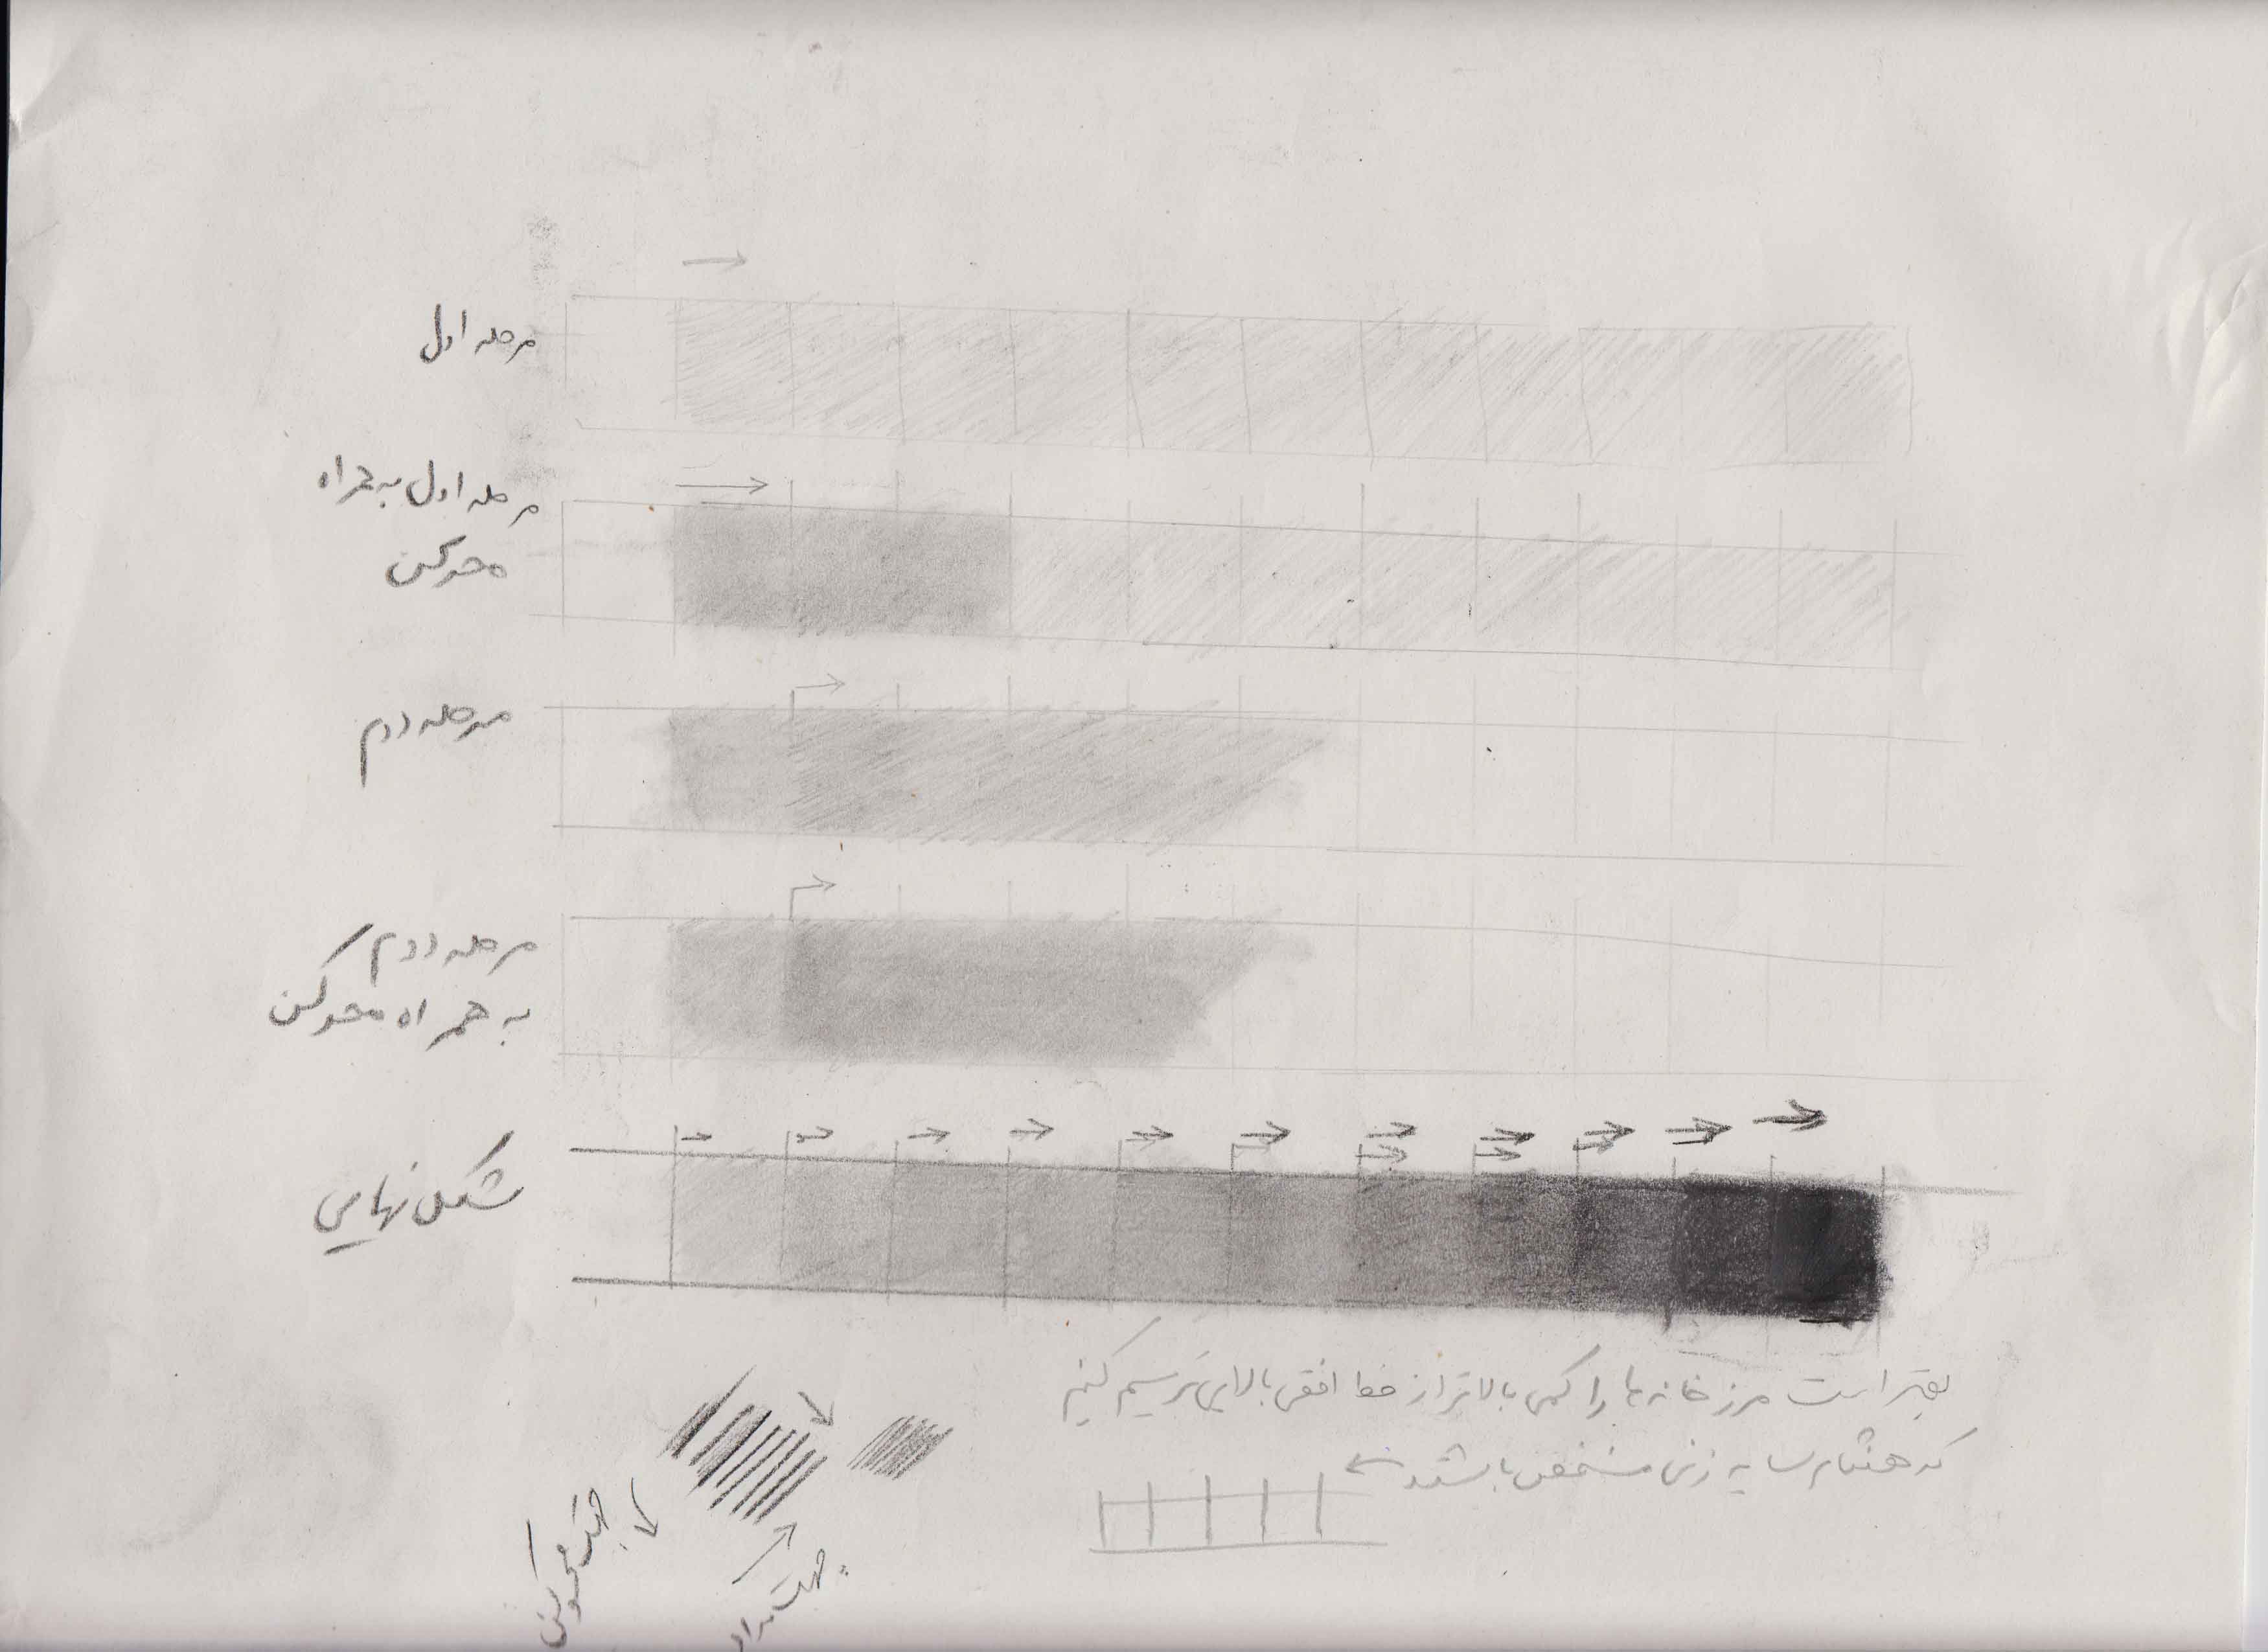 مرحله اول
مرحله اول به همراه
محوکن
مرحله دوم
مرحله دوم
به همراه محوکن
شکل نهایی
بهتر است مرز خانه ها را کمی بالاتر از خط افقی بالایی ترسیم کنیم
که هنگام سایه زنی مشخص باشند
جهت محوکن
جهت مداد